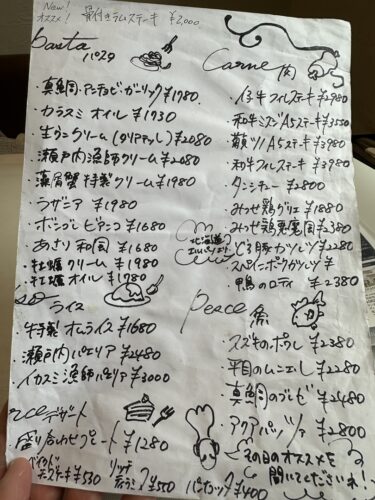 New!
オススメ! 骨付きラムステーキ ¥2,000
pasta
パスタ
・真鯛・アンチョビ・ガーリック ¥1780
・カラスミ オイル ¥1730
・生ウニクリーム ¥2080
・瀬戸内漁師クリーム ¥2080
・藻屑蟹 特製クリーム ¥1980
・ラザニア ¥1980
・ボンゴレ ビアンコ ¥1680
・あさり 和風 ¥1680
・牡蠣 クリーム ¥1980
・牡蠣 オイル ¥1980
ライス
・牛特製 オムライス ¥1680
・瀬戸内パエリア ¥2480
・イカスミ漁師パエリア ¥3000
デザート
・盛り合わせプレート ¥1280
チーズケーキ ¥530
¥550
¥400
Carne 肉
・仔牛フィレステーキ ¥2980
・和牛ミスジA5ステーキ ¥3550
A5ステーキ ¥3980
・和牛フィレステーキ ¥3980
・タンシチュー ¥2800
・みつせ鶏グリエ ¥1880
・みつせ鶏 ¥2380
・とろ豚カツレツ ¥2280
・スペインポークカツレツ ¥
・鴨のロティ ¥2380
北海道
pesce 魚
・スズキのポワレ ¥2380
・平目のムニエレ ¥2280
・真鯛の ¥2480
・アクアパッツァ ¥2800
その日のオススメを
聞いてくださいネ!